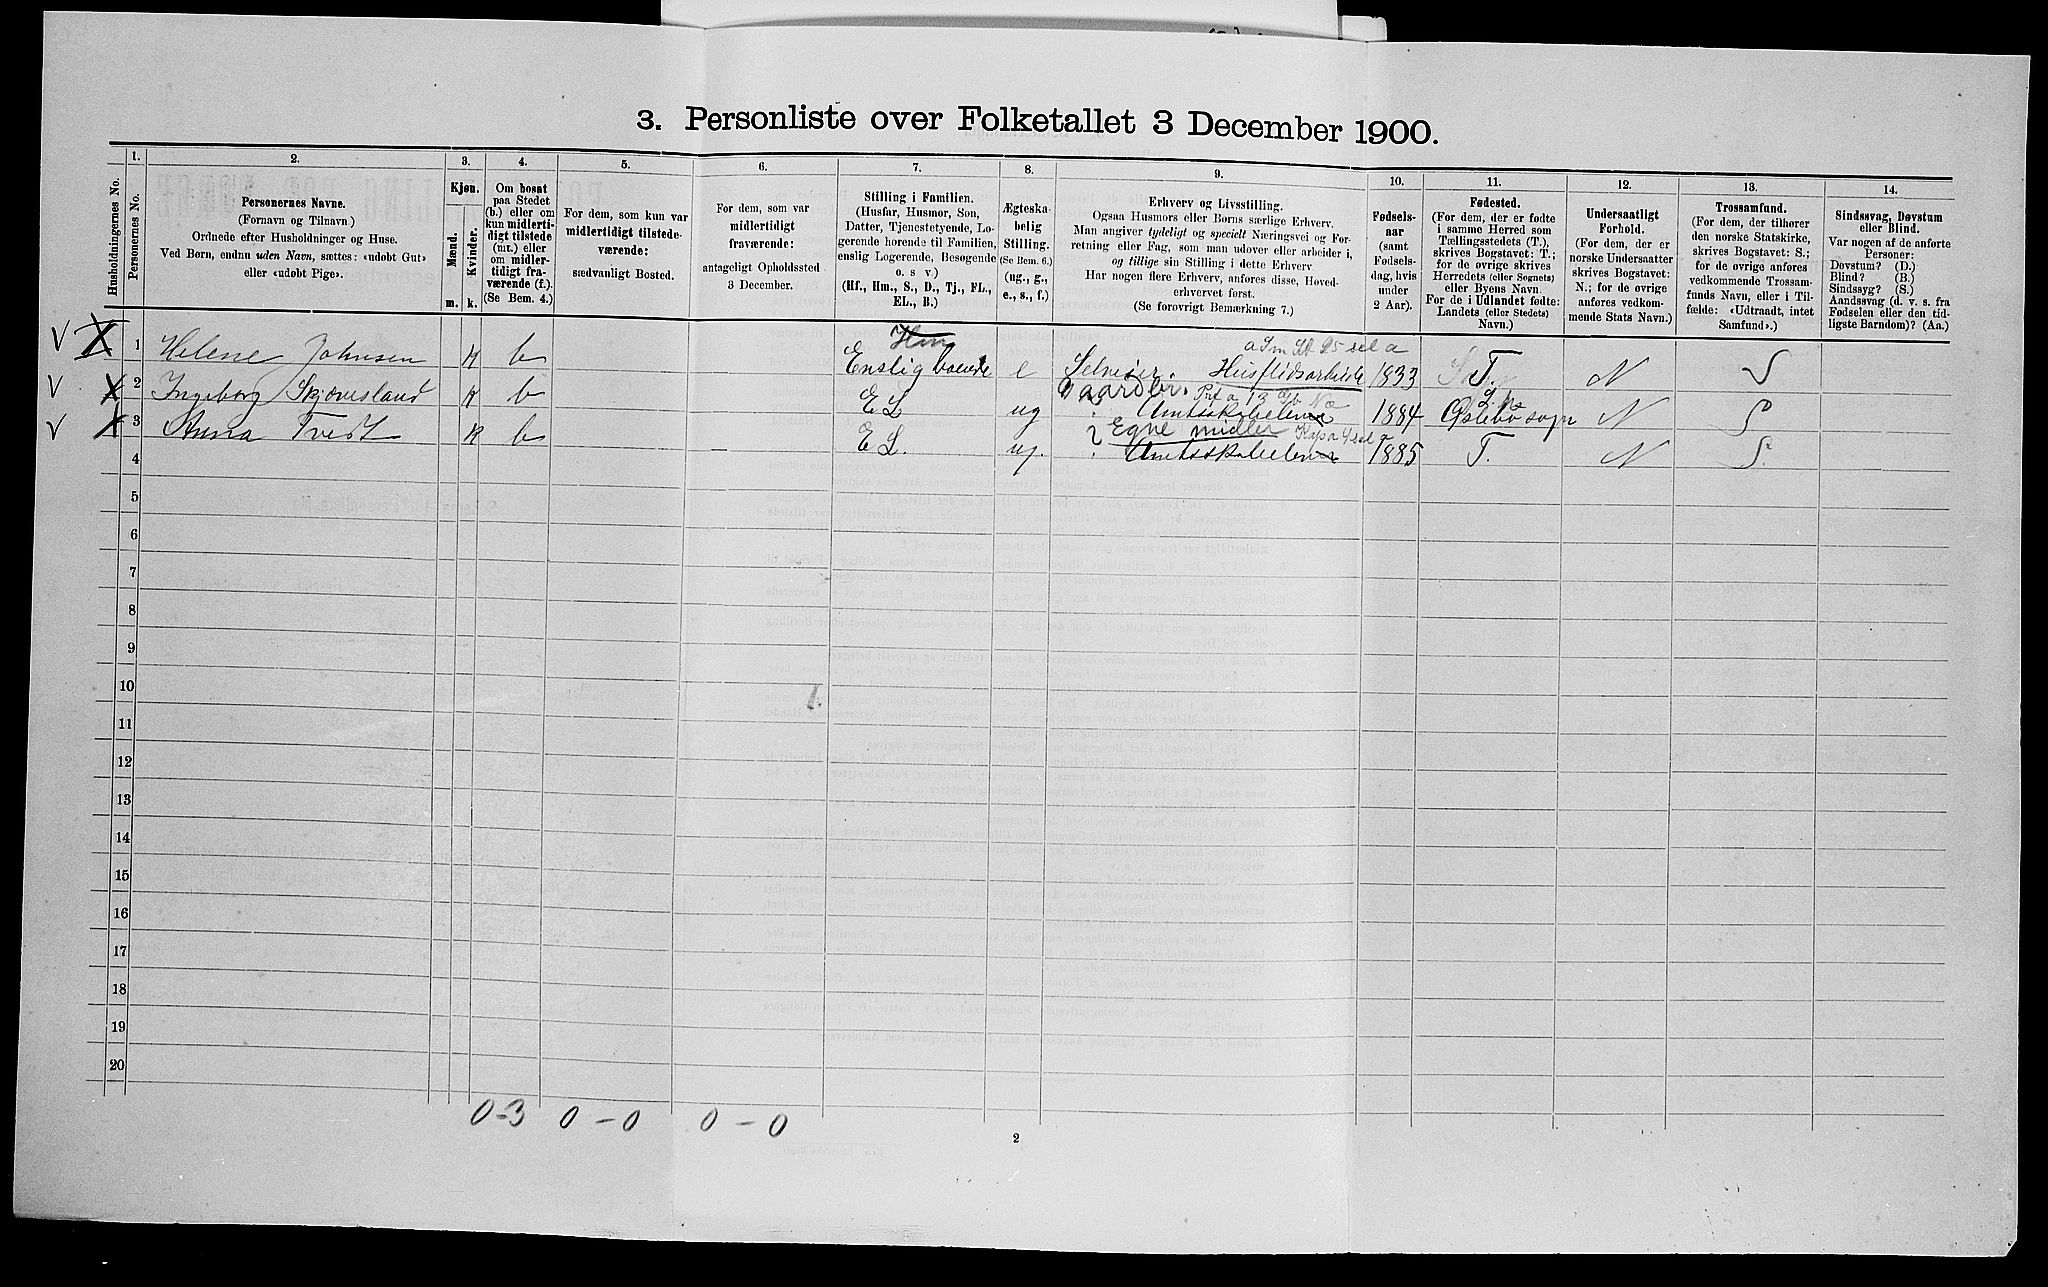 3. Personliste over Folketallet 3 December 1900.
Husholdningernes No.
1.
Personernes No.
2.
Personernes Navne.
(Fornavn og Tilnavn)
Ordnede efter Husholdninger og Huse.
Ved Børn, endnu uden Navn, sættes: «udobt Gut»
eller «udobt Pige».
3.
Kjøn.
Mænd.
Kvinder.
m. k.
4.
Om bosat
paa Stedet
(b.) eller om
kun midlerti-
digt tilstede
(mt.) eller
om midler-
tidigt fra-
værende (f.).
(Se Bem. 4.)
5.
For dem, som kun var
midlertidigt tilstede-
værende:
sædvanligt Bosted.
6.
For dem, som var
midlertidigt
fraværende:
antageligt Opholdssted
3 December.
7.
Stilling i Familien.
(Husfar, Husmor, Søn,
Datter, Tjenestetyende, Lo-
gerende hørende til Familien,
enslig Logerende, Besøgende
o. s v.)
(Hf., Hm., S., D., Tj., FL.,
EL., B.)
8.
Ægteska-
belig
Stilling.
(Se Bem. 6.)
(ug., g.,
e., s., f.)
9.
Erhverv og Livsstilling.
Ogsaa Husmors eller Børns særlige Erhverv.
Man angiver tydeligt og specielt Næringsvei og For-
retning eller Fag, som man udover eller arbeider i,
og tillige sin Stilling i dette Erhverv
Har nogen flere Erhverv, anføres disse, Hoved-
erhvervet først.
(Se forovrigt Bemærkning 7.)
10.
Fødsels-
aar
(samt
Fødsels-
dag, hvis
under
2 Aar).
11.
Fødested.
(For dem, der er fødte
i samme Herred som
Tællingsstedets (T.),
skrives Bogstavet: T.;
for de øvrige skrives
Herredets (eller Sognets)
eller Byens Navn.
For de i Udlandet fødte:
Landets (eller Stedets)
Navn.)
12.
Undersaatligt
Forhold.
(For dem, der er
norske Undersaatter
skrives Bogstavet:
N.; for de øvrige
anføres vedkom-
mende Stats Navn.)
13.
Trossamfund.
(For dem, der tilhører
den norske Statskirke,
skrives Bogstavet: S.;
for de øvrige anføres
vedkommende Trossam-
funds Navn, eller i Til-
fælde: «Udtraadt, intet
Samfund».)
14.
Sindssvag, Døvstum
eller Blind.
Var nogen af de anførte
Personer:
Døvstum? (D.)
Blind? (B.)
Sindssyg? (S.)
Aandssvag (d. v. s. fra
Fødselen eller den tid-
ligste Barndom)? (Aa.)
V X 1 Helene Johnsen k b Hm Enslig boende e Selveier. Husflidsarbeide Gaardbr. 1833 T. N S
V X 2 Ingeborg Skjævesland k b EL ug Amtsskoleelev 1884 Øslebø sogn N S
V X 3 Anna Tvedt k b EL. ug. Egne midler Amtsskoleelev 1885 T. N S.
4
5
6
7
8
9
10
11
12
13
14
15
16
17
18
19
20
0-3 0-0 0-0
2